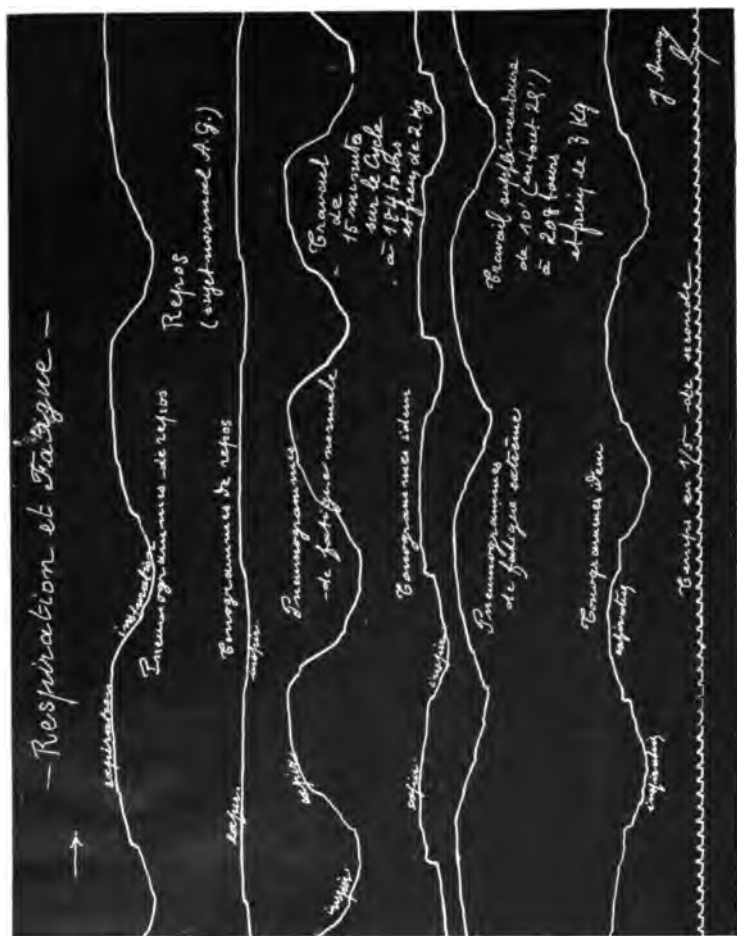 — Respiration et Fatigue —
expiration
inspiration
Pneumogrammes de repos
Repos
(sujet normal A.G.)
Tonogrammes de repos
expir.
inspir.
Pneumogrammes
de fatigue normale
Travail
de
15 minutes
sur le Cycle
à 154 tours
et frein de 2 Kg
inspir.
expir.
Tonogrammes idem
expir.
inspir.
Pneumogrammes
de fatigue extrême
Travail supplémentaire
de 10' (en tout 25')
à 208 tours
et frein de 3 Kg
Tonogrammes idem
expiration
inspiration
J. Amar
Temps en 1/5 de seconde